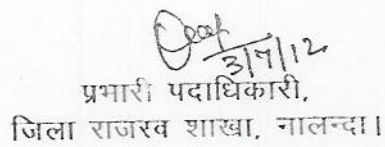 3/7/12
प्रभारी पदाधिकारी,
जिला राजस्व शाखा, नालन्दा।